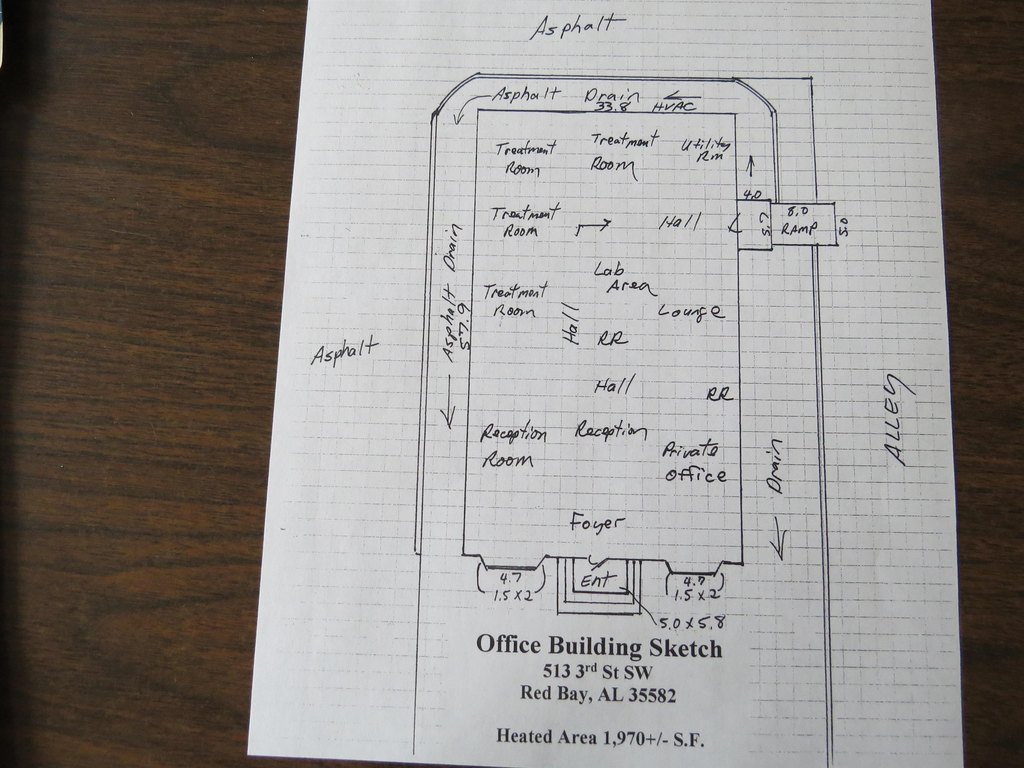 Asphalt
Asphalt
Drain
33.8
HVAC
Treatment
Room
Treatment
Room
Utility
Rm
4.0
5.7
8.0
RAMP
5.0
Treatment
Room
Hall
Lab
Area
Treatment
Room
Hall
Lounge
RR
Asphalt
Asphalt Drain
57.9
Hall
RR
ALLEY
Reception
Room
Reception
Private
Office
Drain
Foyer
4.7
1.5 x 2
Ent
4.7
1.5 x 2
5.0 x 5.8
Office Building Sketch
513 3rd St SW
Red Bay, AL 35582
Heated Area 1,970+/- S.F.